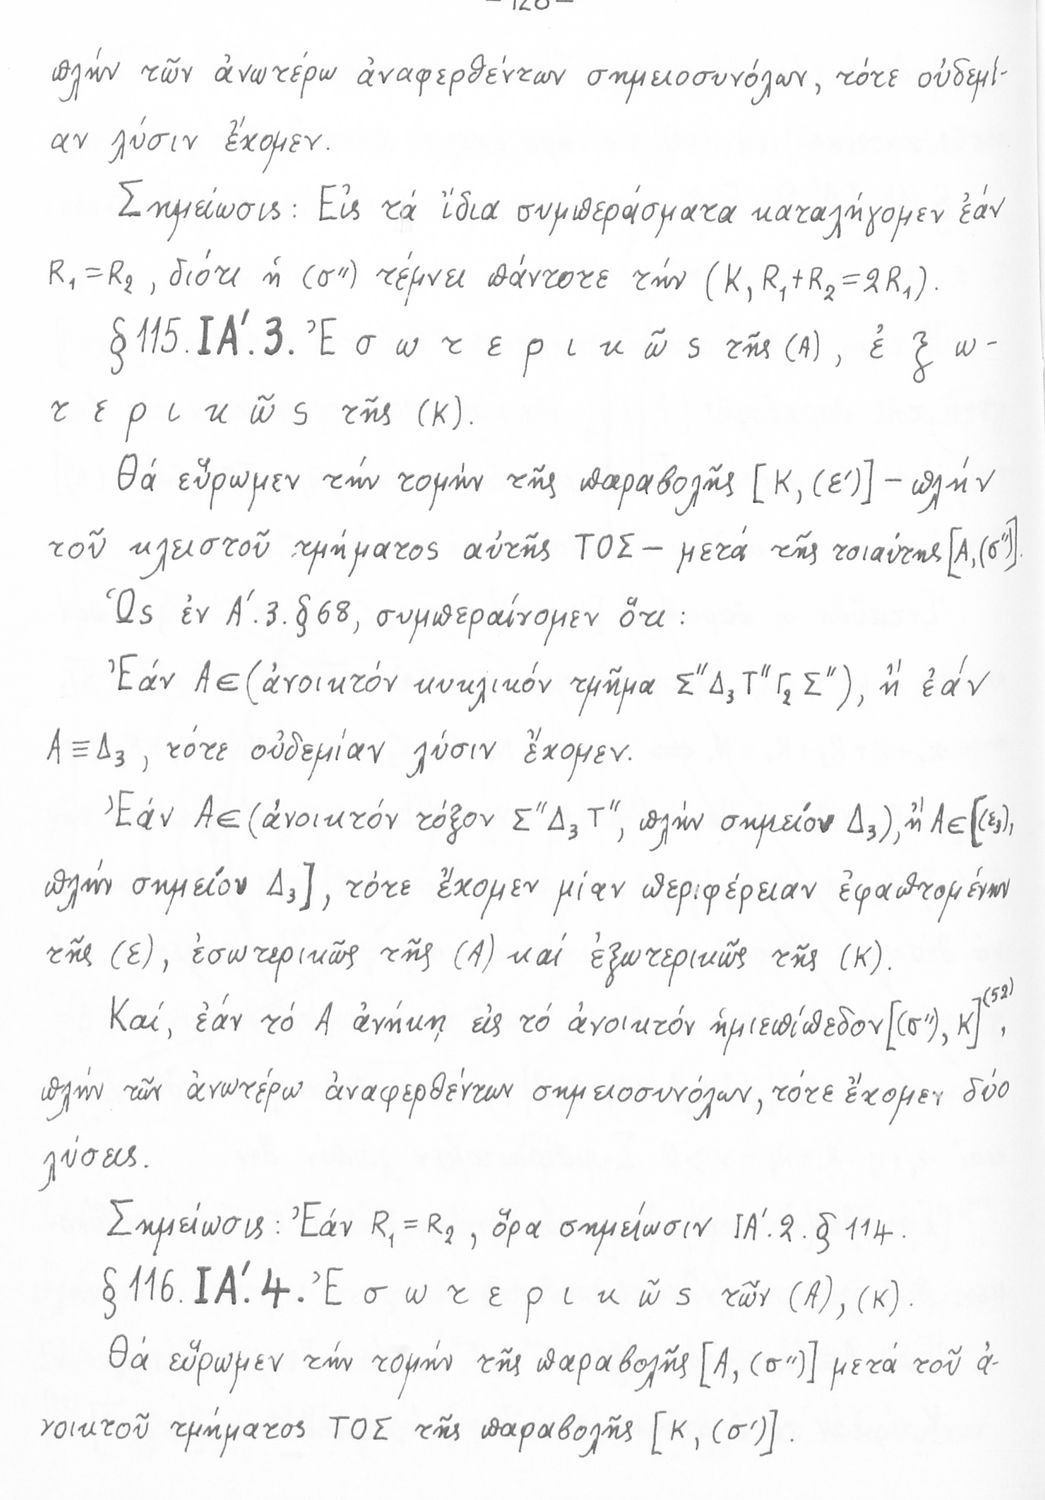 πλήν τῶν ἀνωτέρω ἀναφερθέντων σημειοσυνόλων, τότε οὐδεμί-
αν λύσιν ἔχομεν.
Σημείωσις: Εἰς τά ἴδια συμπεράσματα καταλήγομεν ἐάν
R₁=R₂, διότι ἡ (σ'') τέμνει πάντοτε τήν (K, R₁+R₂=2R₁).
§115. ΙΑ'.3. Ἐσωτερικῶς τῆς (A), ἐξω-
τερικῶς τῆς (K).
Θά εὕρωμεν τήν τομήν τῆς παραβολῆς [K, (ε')] – πλήν
τοῦ κλειστοῦ τμήματος αὐτῆς ΤΟΣ – μετά τῆς τοιαύτης [A, (σ'')].
Ὡς ἐν Α'.3. §68, συμπεραίνομεν ὅτι:
Ἐάν A∈(ἀνοικτόν κυκλικόν τμῆμα Σ''Δ₃Τ''Γ₂Σ''), ἤ ἐάν
A≡Δ₃, τότε οὐδεμίαν λύσιν ἔχομεν.
Ἐάν A∈(ἀνοικτόν τόξον Σ''Δ₃Τ'', πλήν σημείου Δ₃), ἤ A∈[(ε₃),
πλήν σημείου Δ₃], τότε ἔχομεν μίαν περιφέρειαν ἐφαπτομένην
τῆς (ε), ἐσωτερικῶς τῆς (A) καί ἐξωτερικῶς τῆς (K).
Καί, ἐάν τό A ἀνήκῃ εἰς τό ἀνοικτόν ἡμιεπίπεδον [(σ''), K]⁽⁵²⁾,
πλήν τῶν ἀνωτέρω ἀναφερθέντων σημειοσυνόλων, τότε ἔχομεν δύο
λύσεις.
Σημείωσις: Ἐάν R₁=R₂, ὅρα σημείωσιν ΙΑ'.2. § 114.
§116. ΙΑ'.4. Ἐσωτερικῶς τῶν (A), (K).
Θά εὕρωμεν τήν τομήν τῆς παραβολῆς [A, (σ'')] μετά τοῦ ἀ-
νοικτοῦ τμήματος ΤΟΣ τῆς παραβολῆς [K, (σ')].